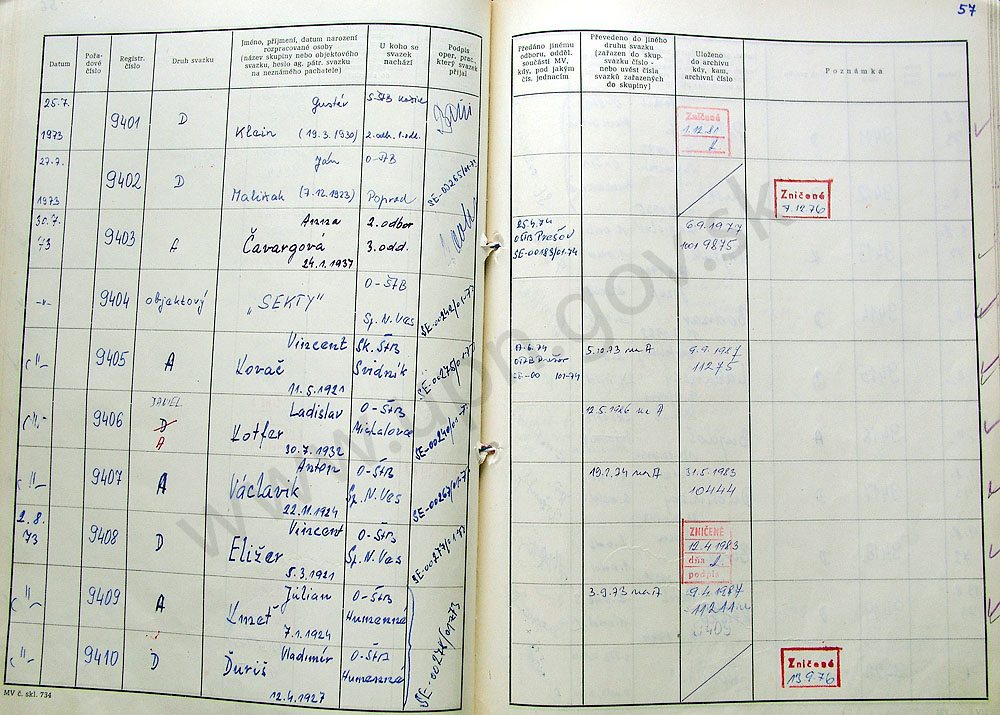 57
Datum
Pořadové číslo
Registr. číslo
Druh svazku
Jméno, příjmení, datum narození
rozpracované osoby
(název skupiny nebo objektového
svazku, heslo ag. pátr. svazku
na neznámého pachatele)
U koho se
svazek
nachází
Podpis
oper. prac.
který svazek
přijal
Předáno jinému
odboru, odděl.
součásti MV,
kdy, pod jakým
čís. jednacím
Převedeno do jiného
druhu svazku
(zařazen do skup.
svazku číslo -
nebo uvést čísla
svazků zařazených
do skupiny)
Uloženo
do archivu
kdy, kam,
archivní číslo
Poznámka
25.7.
1973
9401
D
Gustáv
Klein (19.3.1930)
S-ŠtB Košice
2.odb. 1.odd.
Zničené
1.12.81
27.7.
1973
9402
D
Ján
Maliňak (7.12.1923)
O-ŠtB
Poprad
SE-00265/01-73
Zničené
9.12.76
30.7.
73
9403
A
Anna
Čavargová
24.1.1937
2. odbor
3. odd.
25.4.74
OŠtB Prešov
SE-00183/01-74
6.9.1977
1001 9875
-"-
9404
objektový
„SEKTY"
O-ŠtB
Sp.N.Ves
SE-00242/01-73
-"-
9405
A
Vincent
Kovač
11.5.1921
Sk.ŠtB
Svidník
SE-00275/01-73
17.6.74
OŠtB Prešov
SE-00 101-74
5.10.73 na A
9.9.1987
11275
-"-
9406
DANIEL
D
A
Ladislav
Kotfer
30.7.1932
O-ŠtB
Michalovce
SE-00240/01-73
12.5.1976 na A
-"-
9407
A
Anton
Václavik
22.11.1924
O-ŠtB
Sp.N.Ves
SE-00267/01-73
19.2.74 na A
31.5.1983
10444
2.8.
73
9408
D
Vincent
Eližer
5.3.1921
O-ŠtB
Sp.N.Ves
SE-00277/01-73
ZNIČENÉ
12.4.1983
dňa
podpis
-"-
9409
A
Július
Kmeť
7.1.1924
O-ŠtB
Humenné
SE-00278/01-73
3.9.73 na A
9.4.1987
11211
9409
-"-
9410
D
Vladimír
Ďuriš
12.4.1927
O-ŠtB
Humenné
Zničené
13.9.76
MV č. skl. 734
www.upn.gov.sk